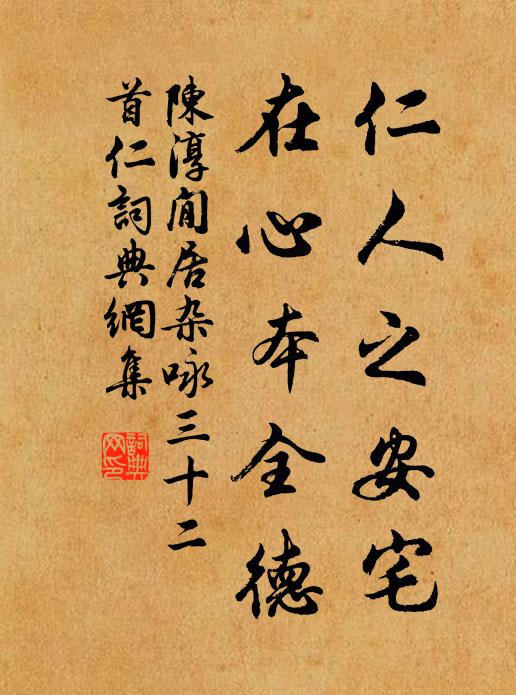 仁人之安宅
在心本全德
陳淳閒居杂咏三十二
首仁詞典網集
詞典
网印